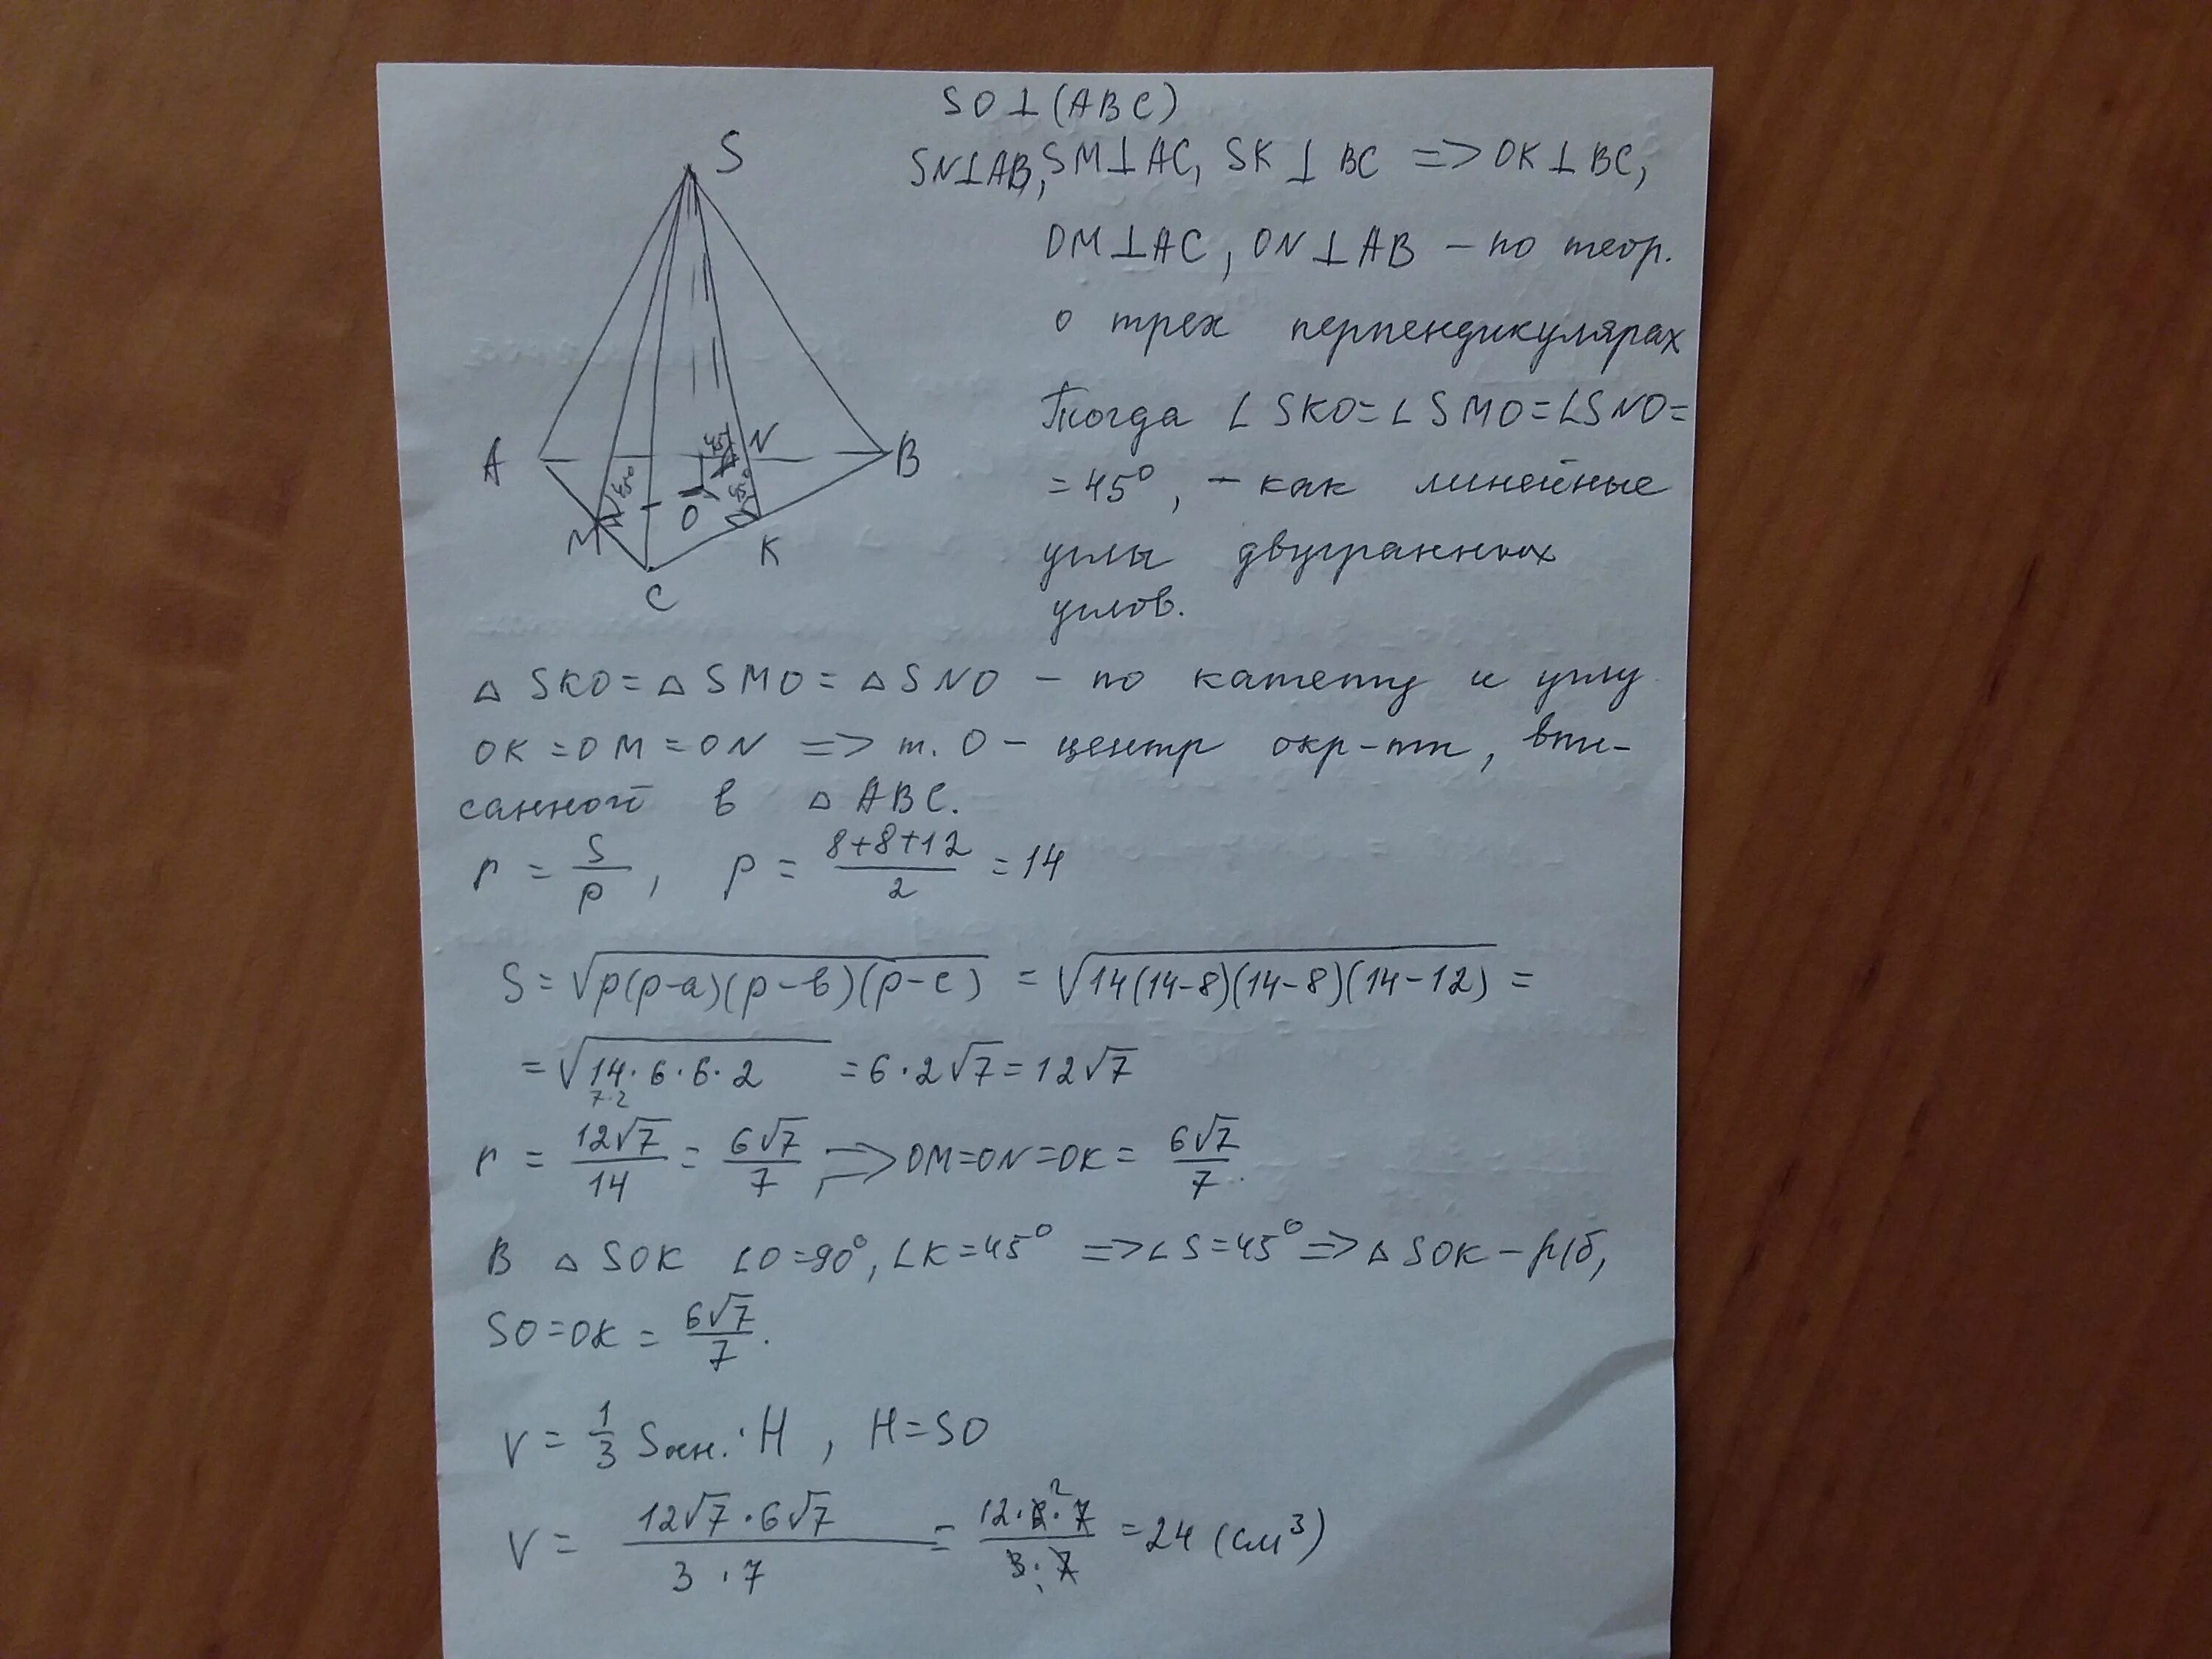 SO⊥(ABC)
SN⊥AB, SM⊥AC, SK⊥BC => OK⊥BC,
OM⊥AC, ON⊥AB – по теор.
о трех перпендикулярах
Тогда ∠SKO=∠SMO=∠SNO=
=45°, – как линейные
углы двугранных
углов.
S
A
B
N
45°
45°
45°
O
M
K
C
△SKO=△SMO=△SNO – по катету и углу
OK=OM=ON => т. O – центр окр-ти, впи-
санной в △ABC.
r = S/p, p = (8+8+12)/2 = 14
S = √(p(p-a)(p-b)(p-c)) = √(14(14-8)(14-8)(14-12)) =
= √(14·6·6·2) = 6·2√7 = 12√7
7·2
r = 12√7/14 = 6√7/7, => OM=ON=OK = 6√7/7.
В △SOK ∠O=90°, ∠K=45° => ∠S=45° => △SOK – р/б,
SO=OK = 6√7/7.
V = 1/3 Sосн.·H, H=SO
V = (12√7·6√7)/(3·7) = (12·6²·7)/(3·7) = 24 (см³)